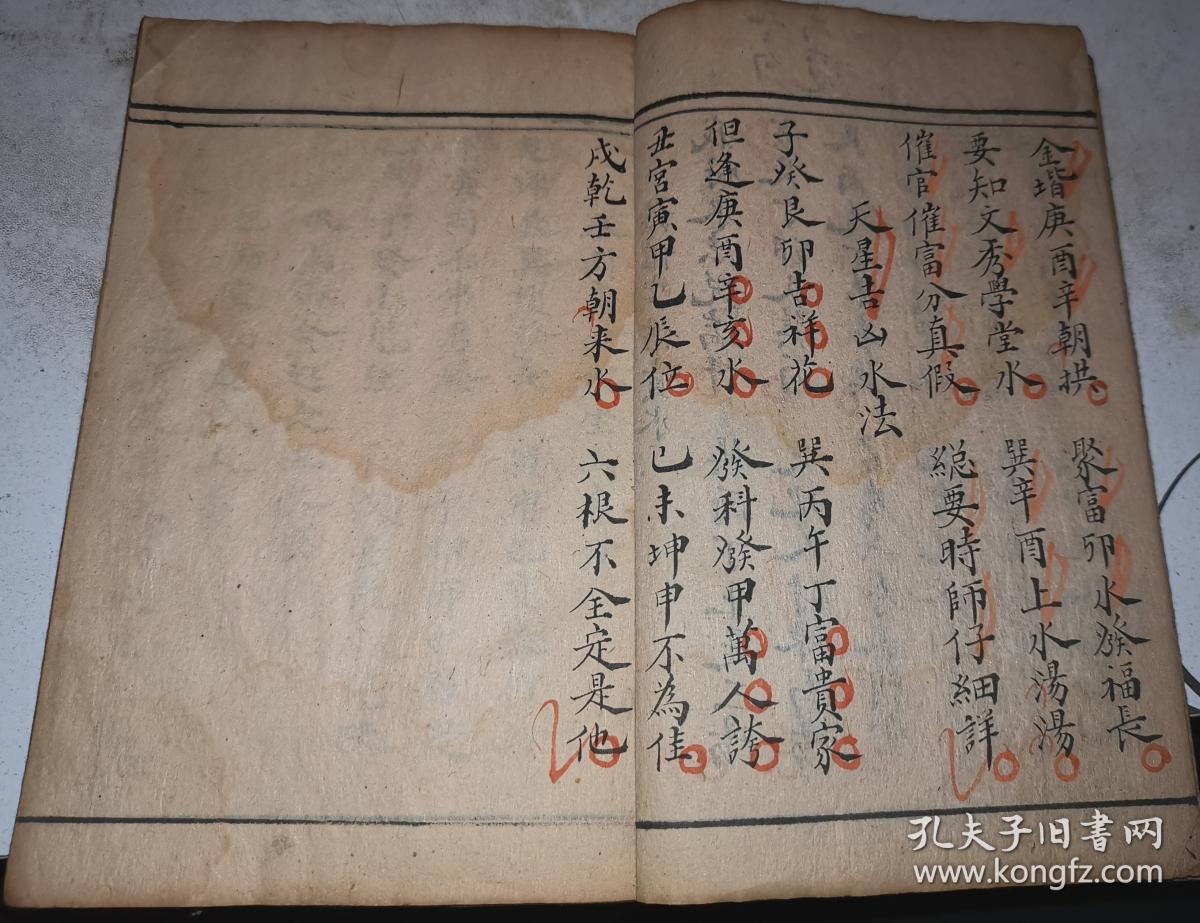 金堦庚酉辛朝拱 聚富卯水發福長
要知文秀學堂水 巽辛酉上水湯湯
催官催富分真假 総要時師仔細詳
天星吉凶水法
子癸艮卯吉祥花 巽丙午丁富貴家
但逢庚酉辛亥水 發科發甲萬人誇
丑宮寅甲乙辰位 巳未坤申不為佳
戌乾壬方朝来水 六根不全定是他
孔夫子旧书网
www.kongfz.com